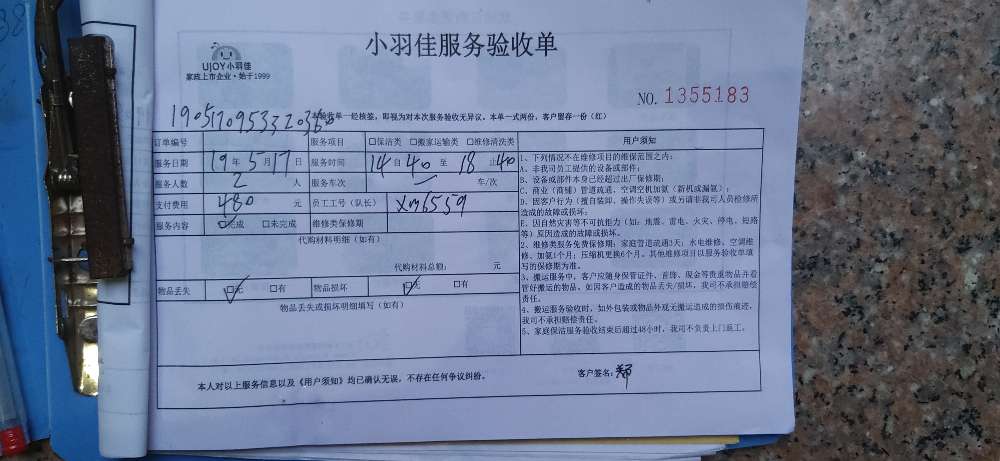 UJOY小羽佳
家政上市企业·始于1999
小羽佳服务验收单
NO. 1355183
本验收单一经核签，即视为对本次服务验收无异议。本单一式两份，客户留存一份（红）
订单编号 服务项目 □保洁类 □搬家运输类 □维修清洗类
服务日期 19年5月17日 服务时间 14自40至18止40
服务人数 2人 服务车次 车/次
支付费用 480元 员工工号（队长） Xm6559
服务内容 □完成 □未完成 维修类保修期
代购材料明细（如有）
代购材料总额： 元
物品丢失 □无 □有 物品损坏 □无 □有
物品丢失或损坏明细填写（如有）
用户须知
1、下列情况不在维修项目的维保范围之内：
A、非我司员工提供的设备或部件；
B、设备或部件本身已经超过出厂保修期；
C、商业（商铺）管道疏通、空调空机加氨（新机或漏氨）；
D、因客户行为（擅自装卸、操作失误等）或另请非我司人员检修所
造成的故障或损坏；
E、因自然灾害等不可抗拒力（如：地震、雷电、火灾、停电、短路
等）原因造成的故障或损坏。
2、维修类服务免费保修期：家庭管道疏通3天；水电维修、空调维
修、加氨1个月；压缩机更换6个月。其他维修项目以服务验收单填
写的保修期为准。
3、搬运服务中，客户应随身保管证件、首饰、现金等贵重物品并看
管好搬运的物品。如因客户造成的物品丢失/损坏，我司不承担赔偿
责任。
4、搬运服务验收时，如外包装或物品外观无搬运造成的损伤痕迹，
我司不承担赔偿责任。
5、家庭保洁服务验收结束后超过48小时，我司不负责上门返工。
本人对以上服务信息以及《用户须知》均已确认无误，不存在任何争议纠纷。
客户签名：